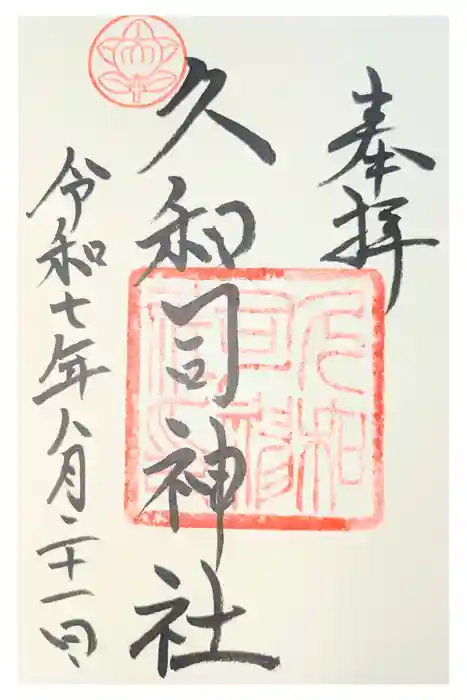 奉拝
久和司神社
令和七年八月二十一日